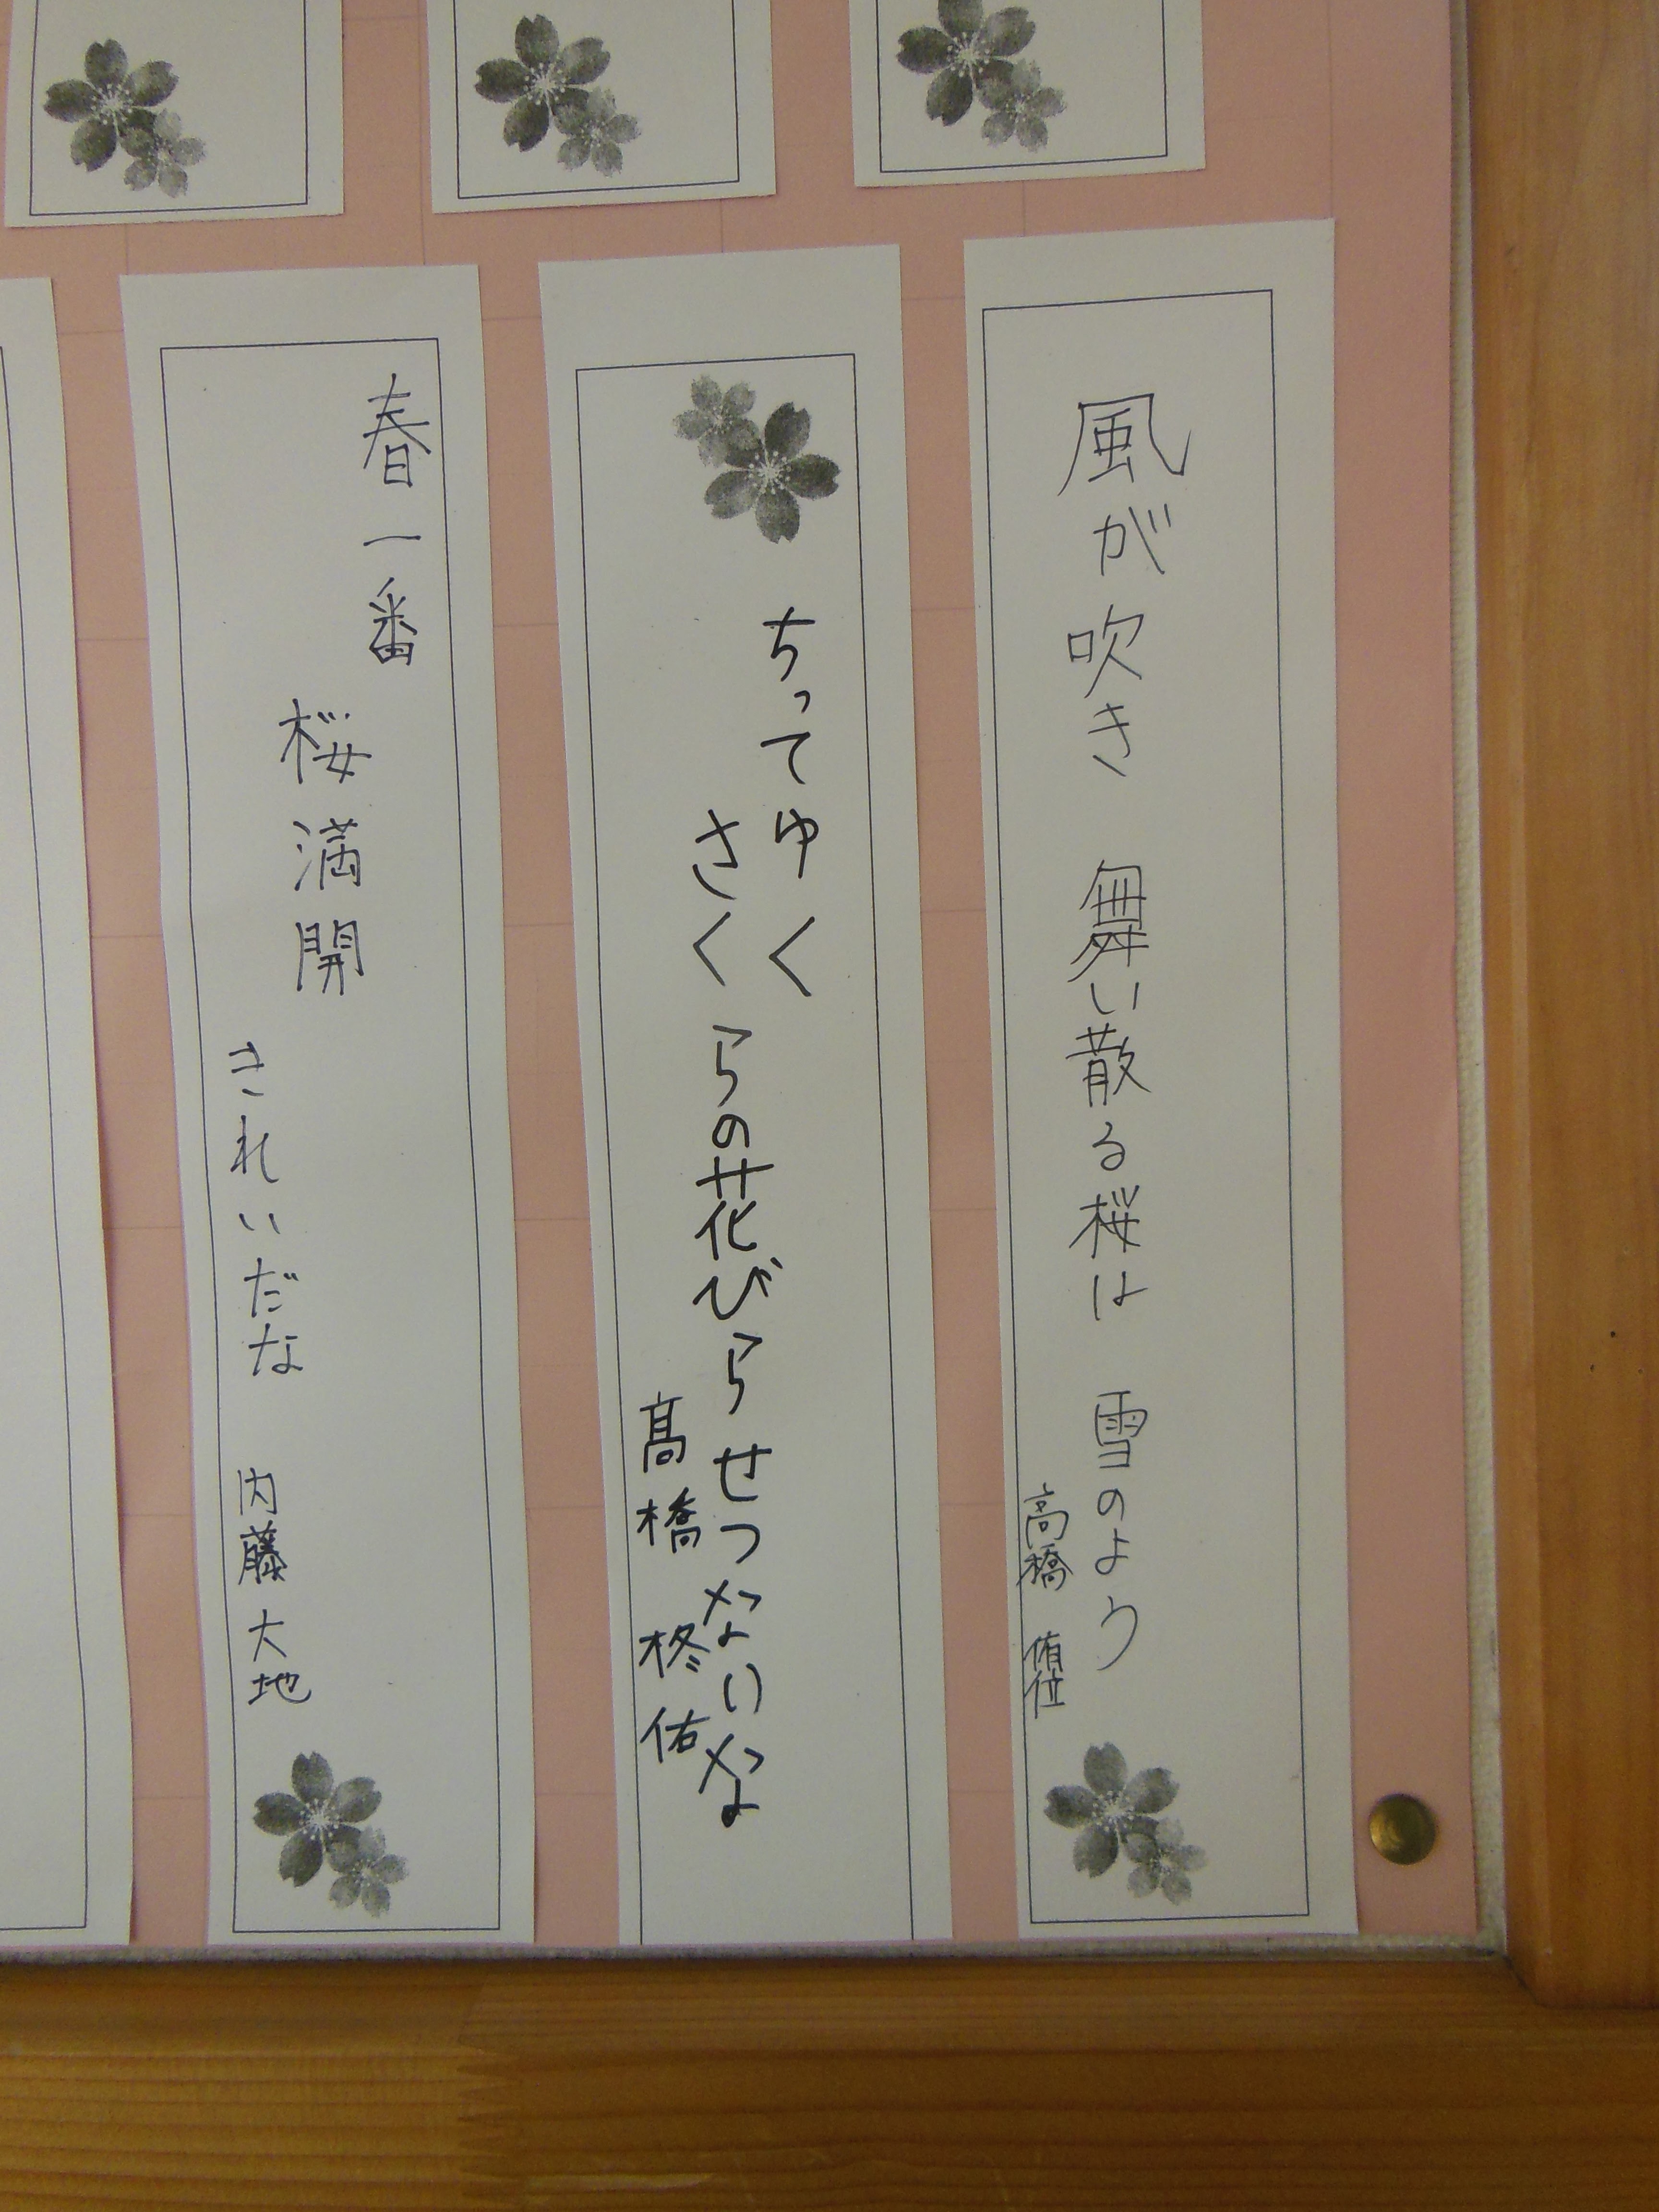 風が吹き 舞い散る桜は 雪のよう
高橋 侑位
ちってゆく
さくらの花びら せつないな
髙橋 柊佑
春一番
桜満開
きれいだな
内藤 大地